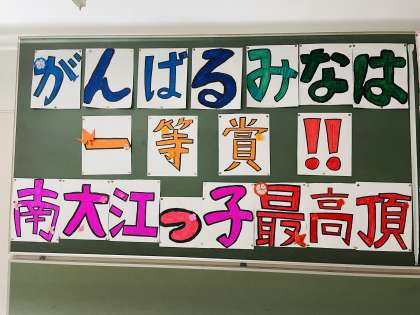 がんばるみなは
一等賞!!
南大江っ子最高頂